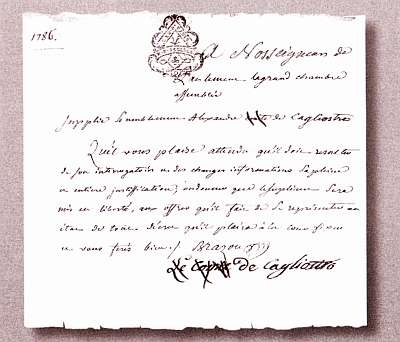 1786.
A Nosseigneurs de
Parlement la grand chambre
assemblée
Supplie humblement Alexandre de Cagliostro
Qu'il vous plaise attendu qu'il doit resulter
de son interrogatoire et des charges informations sa pleine
et entiere justification, ordonner que le supliant sera
mis en liberté, aux offres qu'il fait de se representer en
état de qu'il plaira à la cour
vous ferés bien./.
Le Comte de Cagliostro